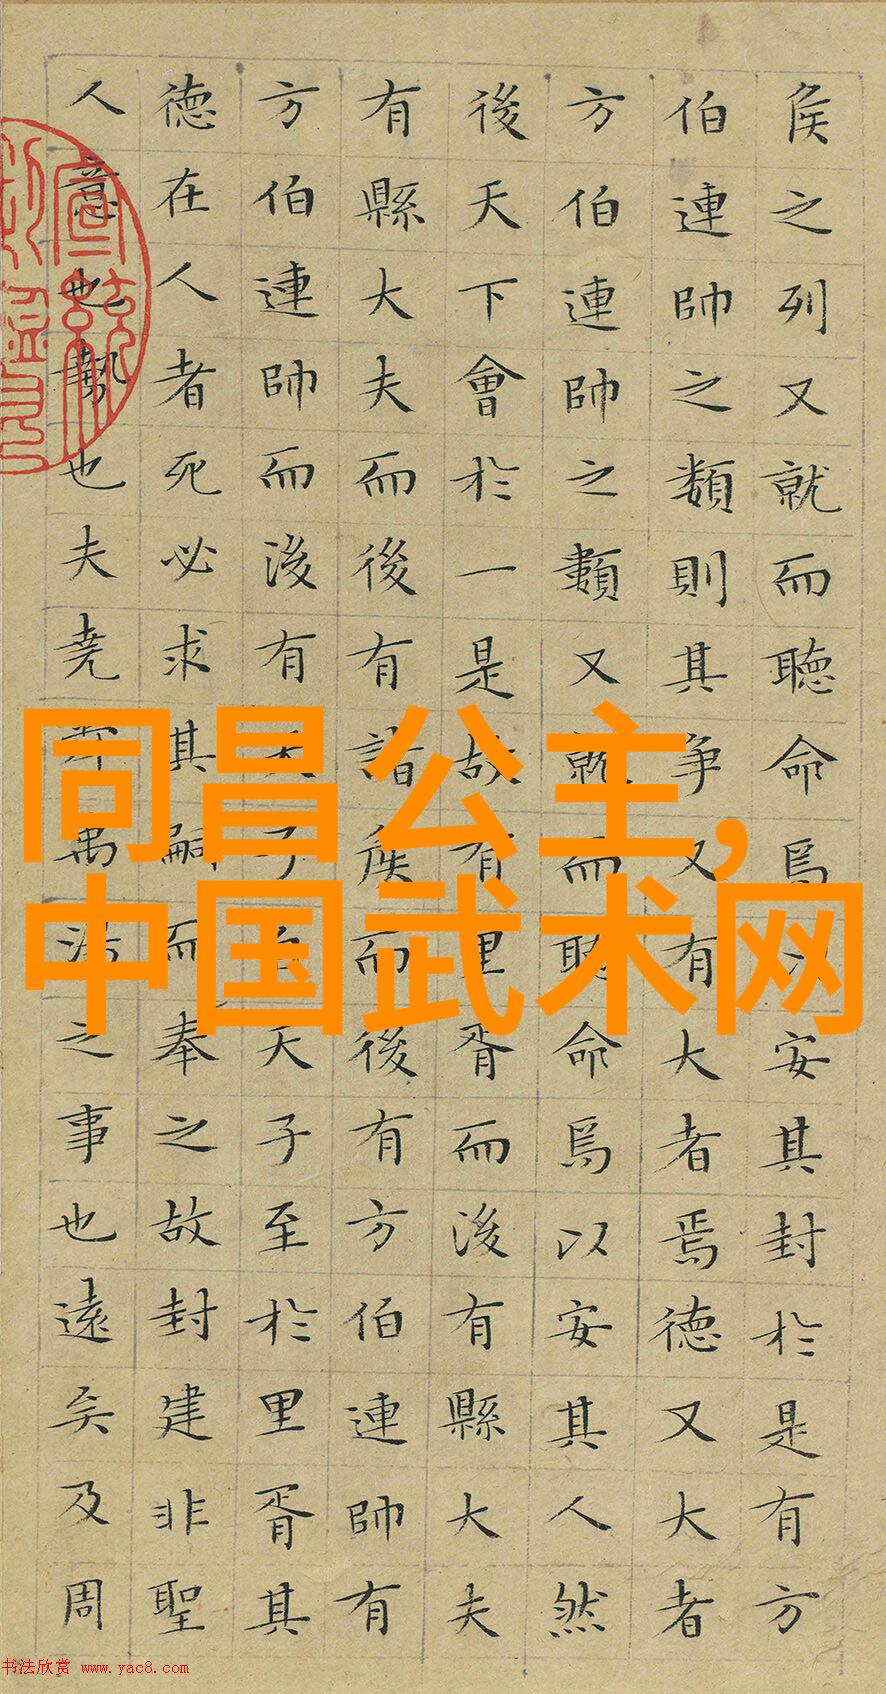 侯之列又就而聴命焉以安其封於是有方
伯連帥之類則其争又有大者焉德又大者
方伯連帥之類又就而聴命焉以安其人然
後天下會於一是故有里胥而後有縣大夫
有縣大夫而後有諸侯而後有方伯連帥有
方伯連帥而後有天子自天子至於里胥其
德在人者死必求其嗣而奉之故封建非聖
人意也勢也夫堯舜禹湯之事也遠矣及周
同昌公主,
中国武术网
书法欣赏 www.yac8.com